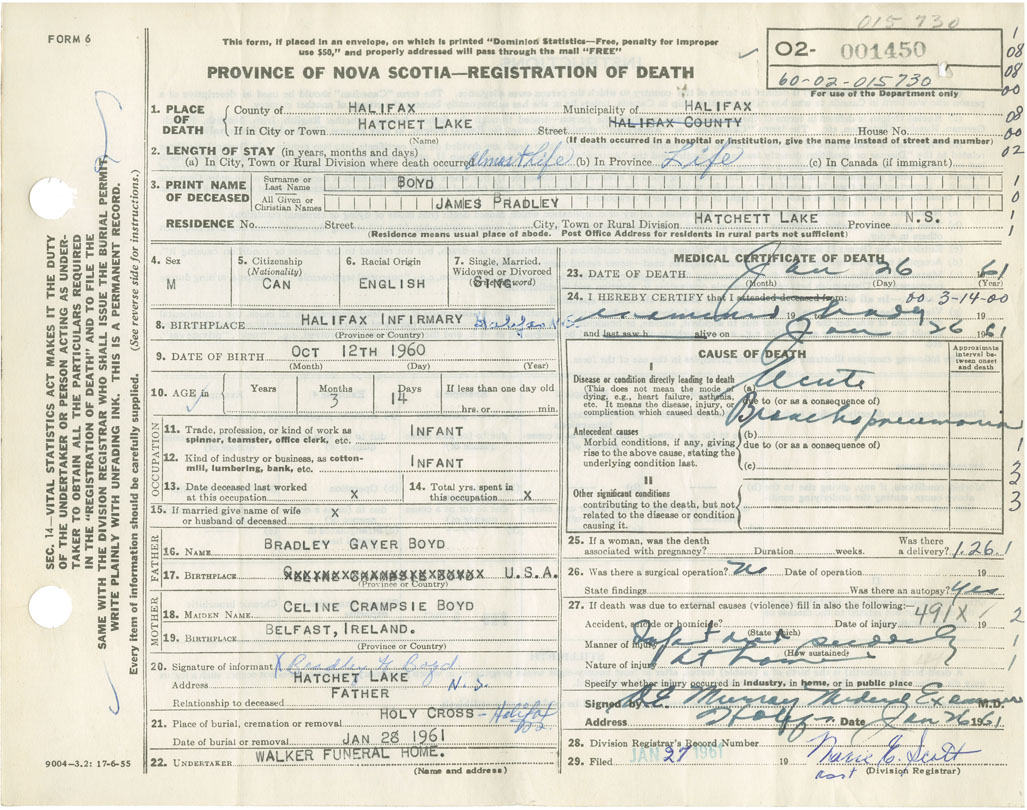 015 730
FORM 6
This form, if placed in an envelope, on which is printed "Dominion Statistics—Free, penalty for improper
use $50," and properly addressed will pass through the mail "FREE"
PROVINCE OF NOVA SCOTIA—REGISTRATION OF DEATH
02- 001450
60-02-015730
For use of the Department only
1
08
08
00
08
00
02
1. PLACE OF DEATH
County of HALIFAX Municipality of HALIFAX
If in City or Town HATCHET LAKE Street HALIFAX COUNTY House No.
(Name) (If death occurred in a hospital or institution, give the name instead of street and number)
2. LENGTH OF STAY (in years, months and days)
(a) In City, Town or Rural Division where death occurred almost Life (b) In Province Life (c) In Canada (if immigrant)
3. PRINT NAME OF DECEASED
Surname or Last Name BOYD 1
All Given or Christian Names JAMES BRADLEY 0
RESIDENCE No. Street City, Town or Rural Division HATCHETT LAKE Province N.S. 1
(Residence means usual place of abode. Post Office Address for residents in rural parts not sufficient) 1
4. Sex M
5. Citizenship (Nationality) CAN
6. Racial Origin ENGLISH
7. Single, Married, Widowed or Divorced SING
8. BIRTHPLACE HALIFAX INFIRMARY Halifax N.S.
(Province or Country)
9. DATE OF BIRTH OCT 12TH 1960
(Month) (Day) (Year)
10. AGE in Years Months 3 Days 14 If less than one day old hrs. or min.
OCCUPATION
11. Trade, profession, or kind of work as spinner, teamster, office clerk, etc. INFANT
12. Kind of industry or business, as cotton-mill, lumbering, bank, etc. INFANT
13. Date deceased last worked at this occupation X
14. Total yrs. spent in this occupation X
15. If married give name of wife or husband of deceased X
FATHER
16. NAME BRADLEY GAYER BOYD
17. BIRTHPLACE U.S.A.
(Province or Country)
MOTHER
18. MAIDEN NAME CELINE CRAMPSIE BOYD
19. BIRTHPLACE BELFAST, IRELAND.
(Province or Country)
20. Signature of informant X Bradley G Boyd
Address HATCHET LAKE N.S.
Relationship to deceased FATHER
21. Place of burial, cremation or removal HOLY CROSS - Halifax
Date of burial or removal JAN 28 1961
22. UNDERTAKER WALKER FUNERAL HOME.
(Name and address)
MEDICAL CERTIFICATE OF DEATH
23. DATE OF DEATH Jan 26 1961
(Month) (Day) (Year)
24. I HEREBY CERTIFY that I attended deceased from: 00 3-14-00
examined 19 body
and last saw h alive on Jan 26 1961
CAUSE OF DEATH
Approximate interval between onset and death
I
Disease or condition directly leading to death
(This does not mean the mode of dying, e.g., heart failure, asthenia, etc. It means the disease, injury, or complication which caused death.)
(a) Acute
due to (or as a consequence of)
Bronchopneumonia
Antecedent causes
Morbid conditions, if any, giving rise to the above cause, stating the underlying condition last.
(b)
due to (or as a consequence of)
(c)
II
Other significant conditions
contributing to the death, but not related to the disease or condition causing it.
1
3
2
3
25. If a woman, was the death associated with pregnancy? Duration weeks. Was there a delivery? 1.26.1
26. Was there a surgical operation? No Date of operation 19
State findings Was there an autopsy? yes
27. If death was due to external causes (violence) fill in also the following:- 491X
Accident, suicide or homicide? Date of injury 19 2
(State which)
Manner of injury Infant died suddenly 1
(How sustained)
Nature of injury at home 1
Specify whether injury occurred in industry, in home, or in public place
Signed by Murray Medical Examiner M.D.
Address Halifax Date Jan 26 1961
28. Division Registrar's Record Number
29. Filed JAN 27 1961 Marie E. Scott
(Division Registrar)
SEC. 14—VITAL STATISTICS ACT MAKES IT THE DUTY
OF THE UNDERTAKER OR PERSON ACTING AS UNDER-
TAKER TO OBTAIN ALL THE PARTICULARS REQUIRED
IN THE "REGISTRATION OF DEATH" AND TO FILE THE
SAME WITH THE DIVISION REGISTRAR WHO SHALL ISSUE THE BURIAL PERMIT.
WRITE PLAINLY WITH UNFADING INK. THIS IS A PERMANENT RECORD.
Every item of information should be carefully supplied. (See reverse side for instructions.)
9004—3.2: 17-6-55